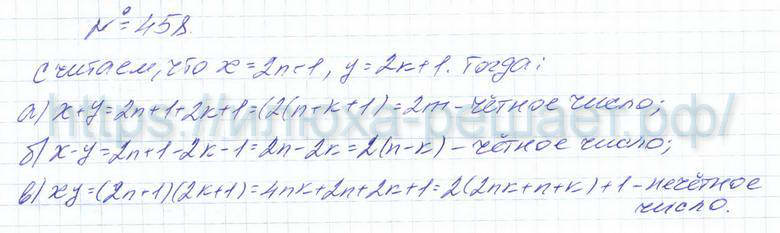 № 458.
Считаем, что x = 2n+1, y = 2к+1. Тогда:
а) x+y = 2n+1+2к+1 = (2(n+к+1) = 2m - чётное число;
https://илюха-решает.рф/
б) x-y = 2n+1-2к-1 = 2n-2к = 2(n-к) - чётное число;
в) xy = (2n+1)(2к+1) = 4nк+2n+2к+1 = 2(2nк+n+к)+1 - нечётное
число.